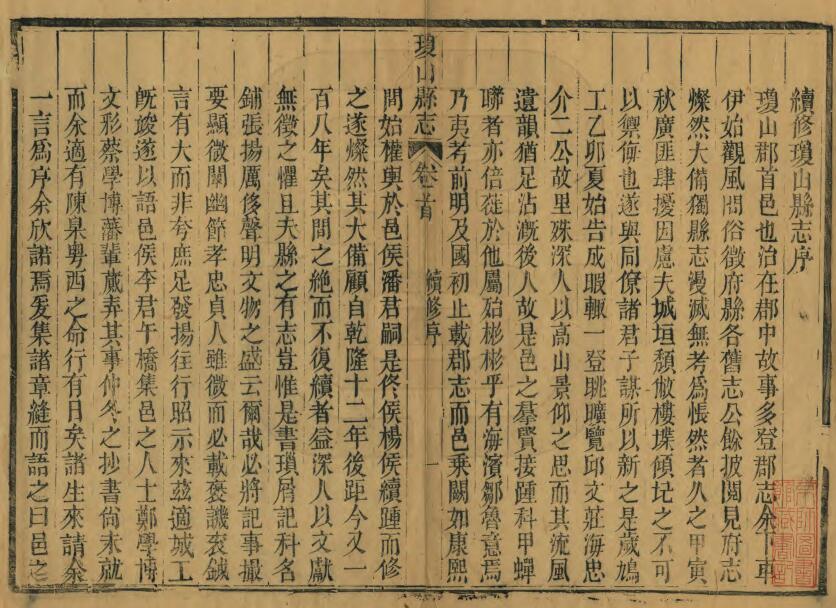 續修瓊山縣志序
瓊山郡首邑也泊在郡中故事多登郡志余下車
伊始觀風問俗徵府縣各舊志公餘披閱見府志
燦然大備獨縣志漫滅無考爲悵然者久之甲寅
秋廣匪肆擾因慮夫城垣頹倣樓堞傾圮之不可
以禦侮也遂與同僚諸君子謀所以新之是歲鳩
工乙卯夏始告成暇輙一登眺曠覽邱文莊海忠
介二公故里殊深人以高山景仰之思而其流風
遺韻猶足沾漑後人故是邑之羣賢接踵科甲蟬
聯者亦倍蓰於他屬始彬彬乎有海濱鄒魯意焉
乃夷考前明及國初止載郡志而邑乘闕如康熙
瓊山縣志 卷首 續修序 一
間始權輿於邑侯潘君嗣是佟侯楊侯續踵而修
之遂燦然其大備顧自乾隆十二年後距今又一
百八年矣其間之絶而不復續者益深人以文獻
無徵之懼且夫縣之有志豈惟是書瑣屑記科名
鋪張揚厲侈聲明文物之盛云爾哉必將記事撮
要顯微闡幽節孝忠貞人雖微而必載褒譏衮鉞
言有大而非夸庶足發揚往行昭示來茲適城工
旣竣遂以語邑侯李君午橋集邑之人士鄭學博
文彩蔡學博藩輩蕆弄其事仲冬之抄書尙未就
而余適有陳臬粵西之命行有日矣諸生來請余
一言爲序余欣諾焉爰集諸章縫而語之曰邑之